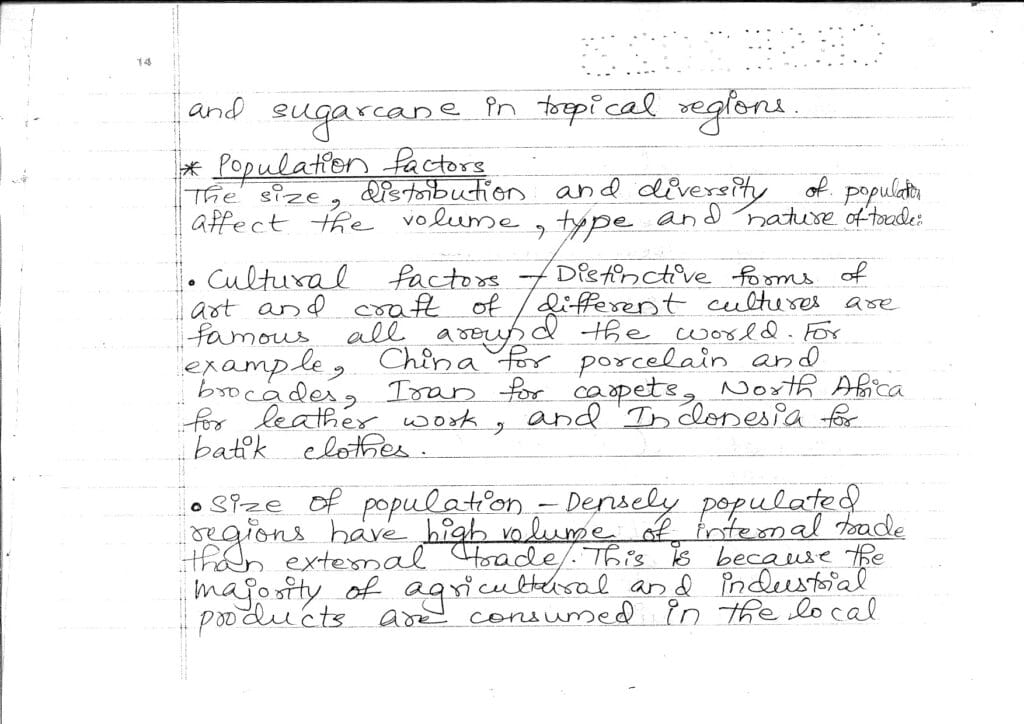 14
and sugarcane in tropical regions.
* Population factors
The size, distribution and diversity of population
affect the volume, type and nature of trade:
• Cultural factors – Distinctive forms of
art and craft of different cultures are
famous all around the world. For
example, China for porcelain and
brocades, Iran for carpets, North Africa
for leather work, and Indonesia for
batik clothes.
• Size of population – Densely populated
regions have high volume of internal trade
than external trade. This is because the
majority of agricultural and industrial
products are consumed in the local